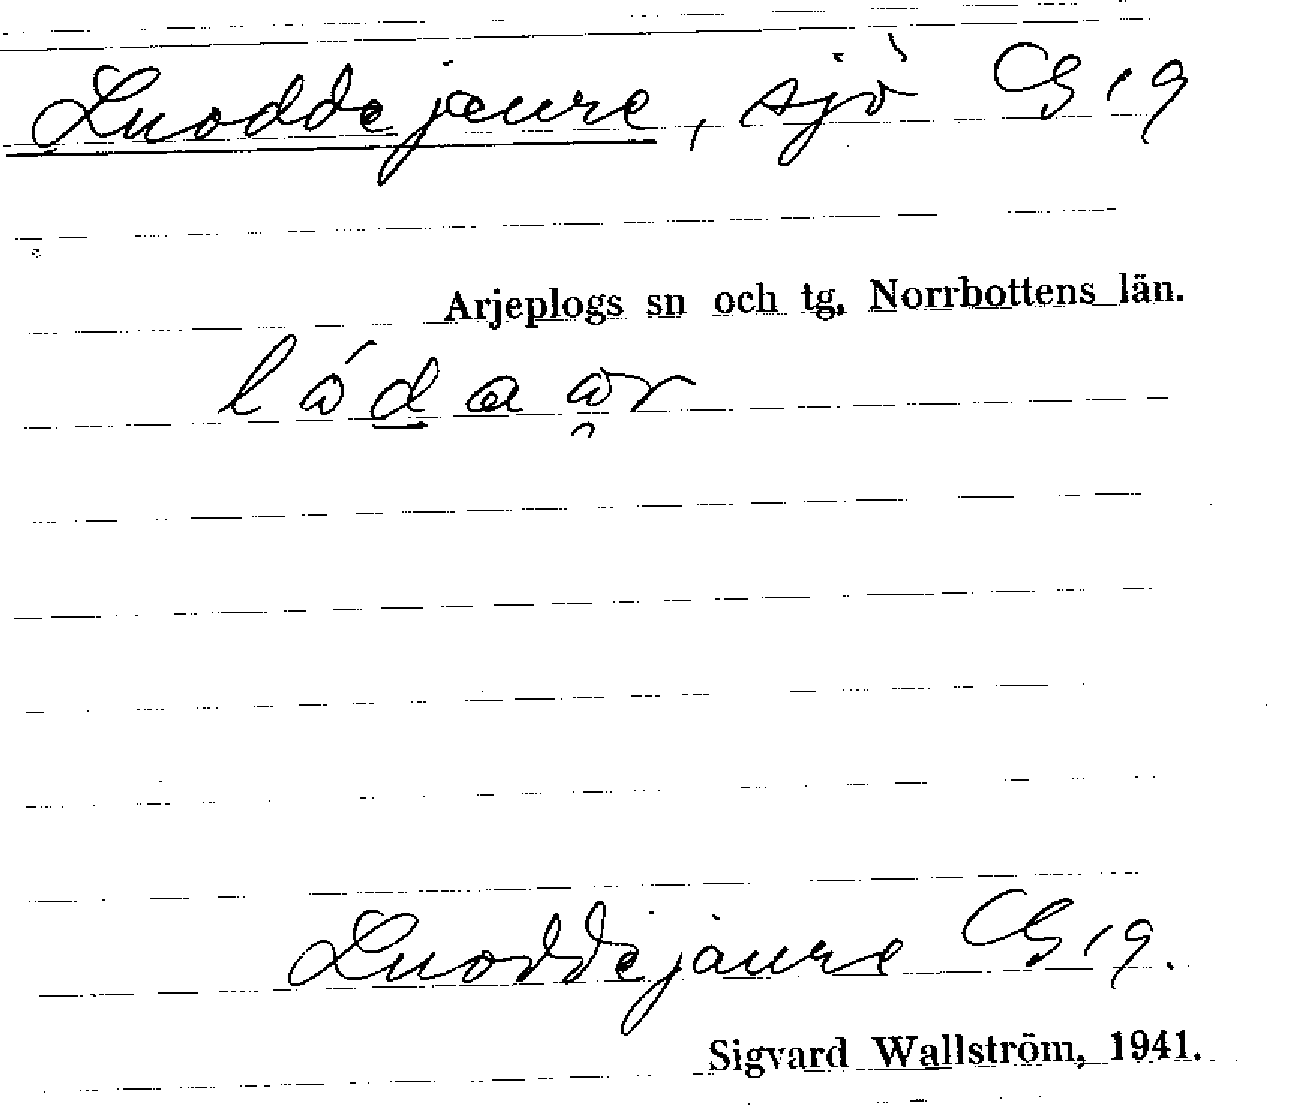 Luoddejaure, sjö G 19
Arjeplogs sn och tg, Norrbottens län.
Luoddejaure G 19.
Sigvard Wallström, 1941.